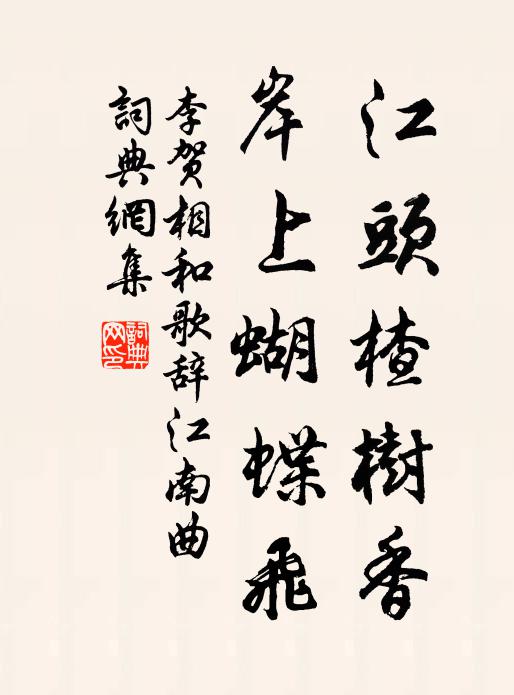 江頭楂樹香
岸上蝴蝶飛
李贺相和歌辞江南曲
詞典網集
詞典
网印